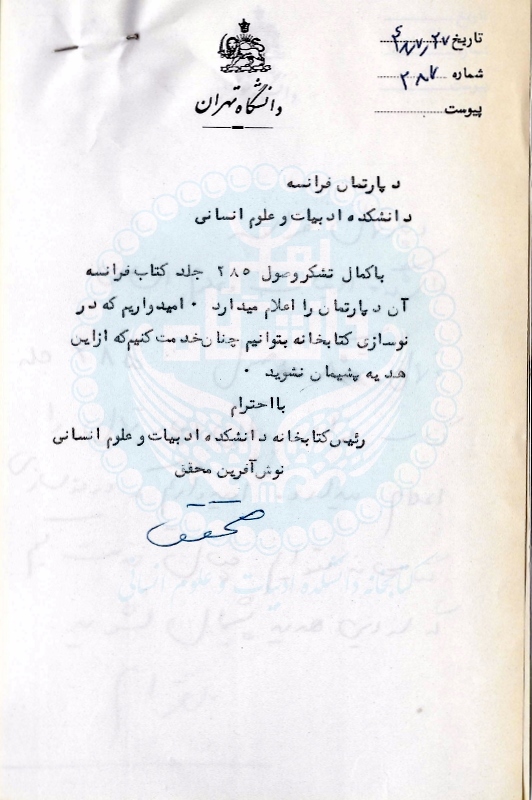 دانشگاه تهران
تاریخ
شماره ۲۸۷
پیوست
دپارتمان فرانسه
دانشکده ادبیات و علوم انسانی
باکمال تشکر وصول ۲۸۵ جلد کتاب فرانسه
آن دپارتمان را اعلام میدارد ۰ امیدواریم که در
نوسازی کتابخانه بتوانیم چنان خدمت کنیم که از این
هدیه پشیمان نشوید ۰
با احترام
رئیس کتابخانه دانشکده ادبیات و علوم انسانی
نوش آفرین محقق
محقق
کتابخانه دانشکده ادبیات و علوم انسانی